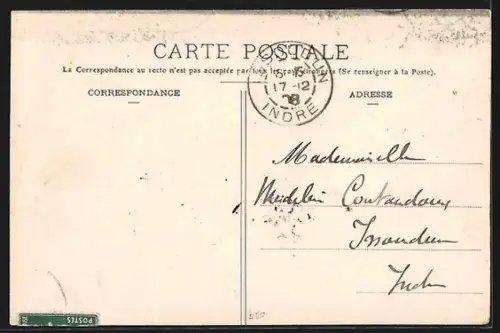 CARTE POSTALE
La Correspondance au recto n'est pas acceptée par tous les pays étrangers (Se renseigner à la Poste).
CORRESPONDANCE
ADRESSE
ISSOUDUN
17-12
08
INDRE
Mademoiselle
Issoudun
Indre
POSTES